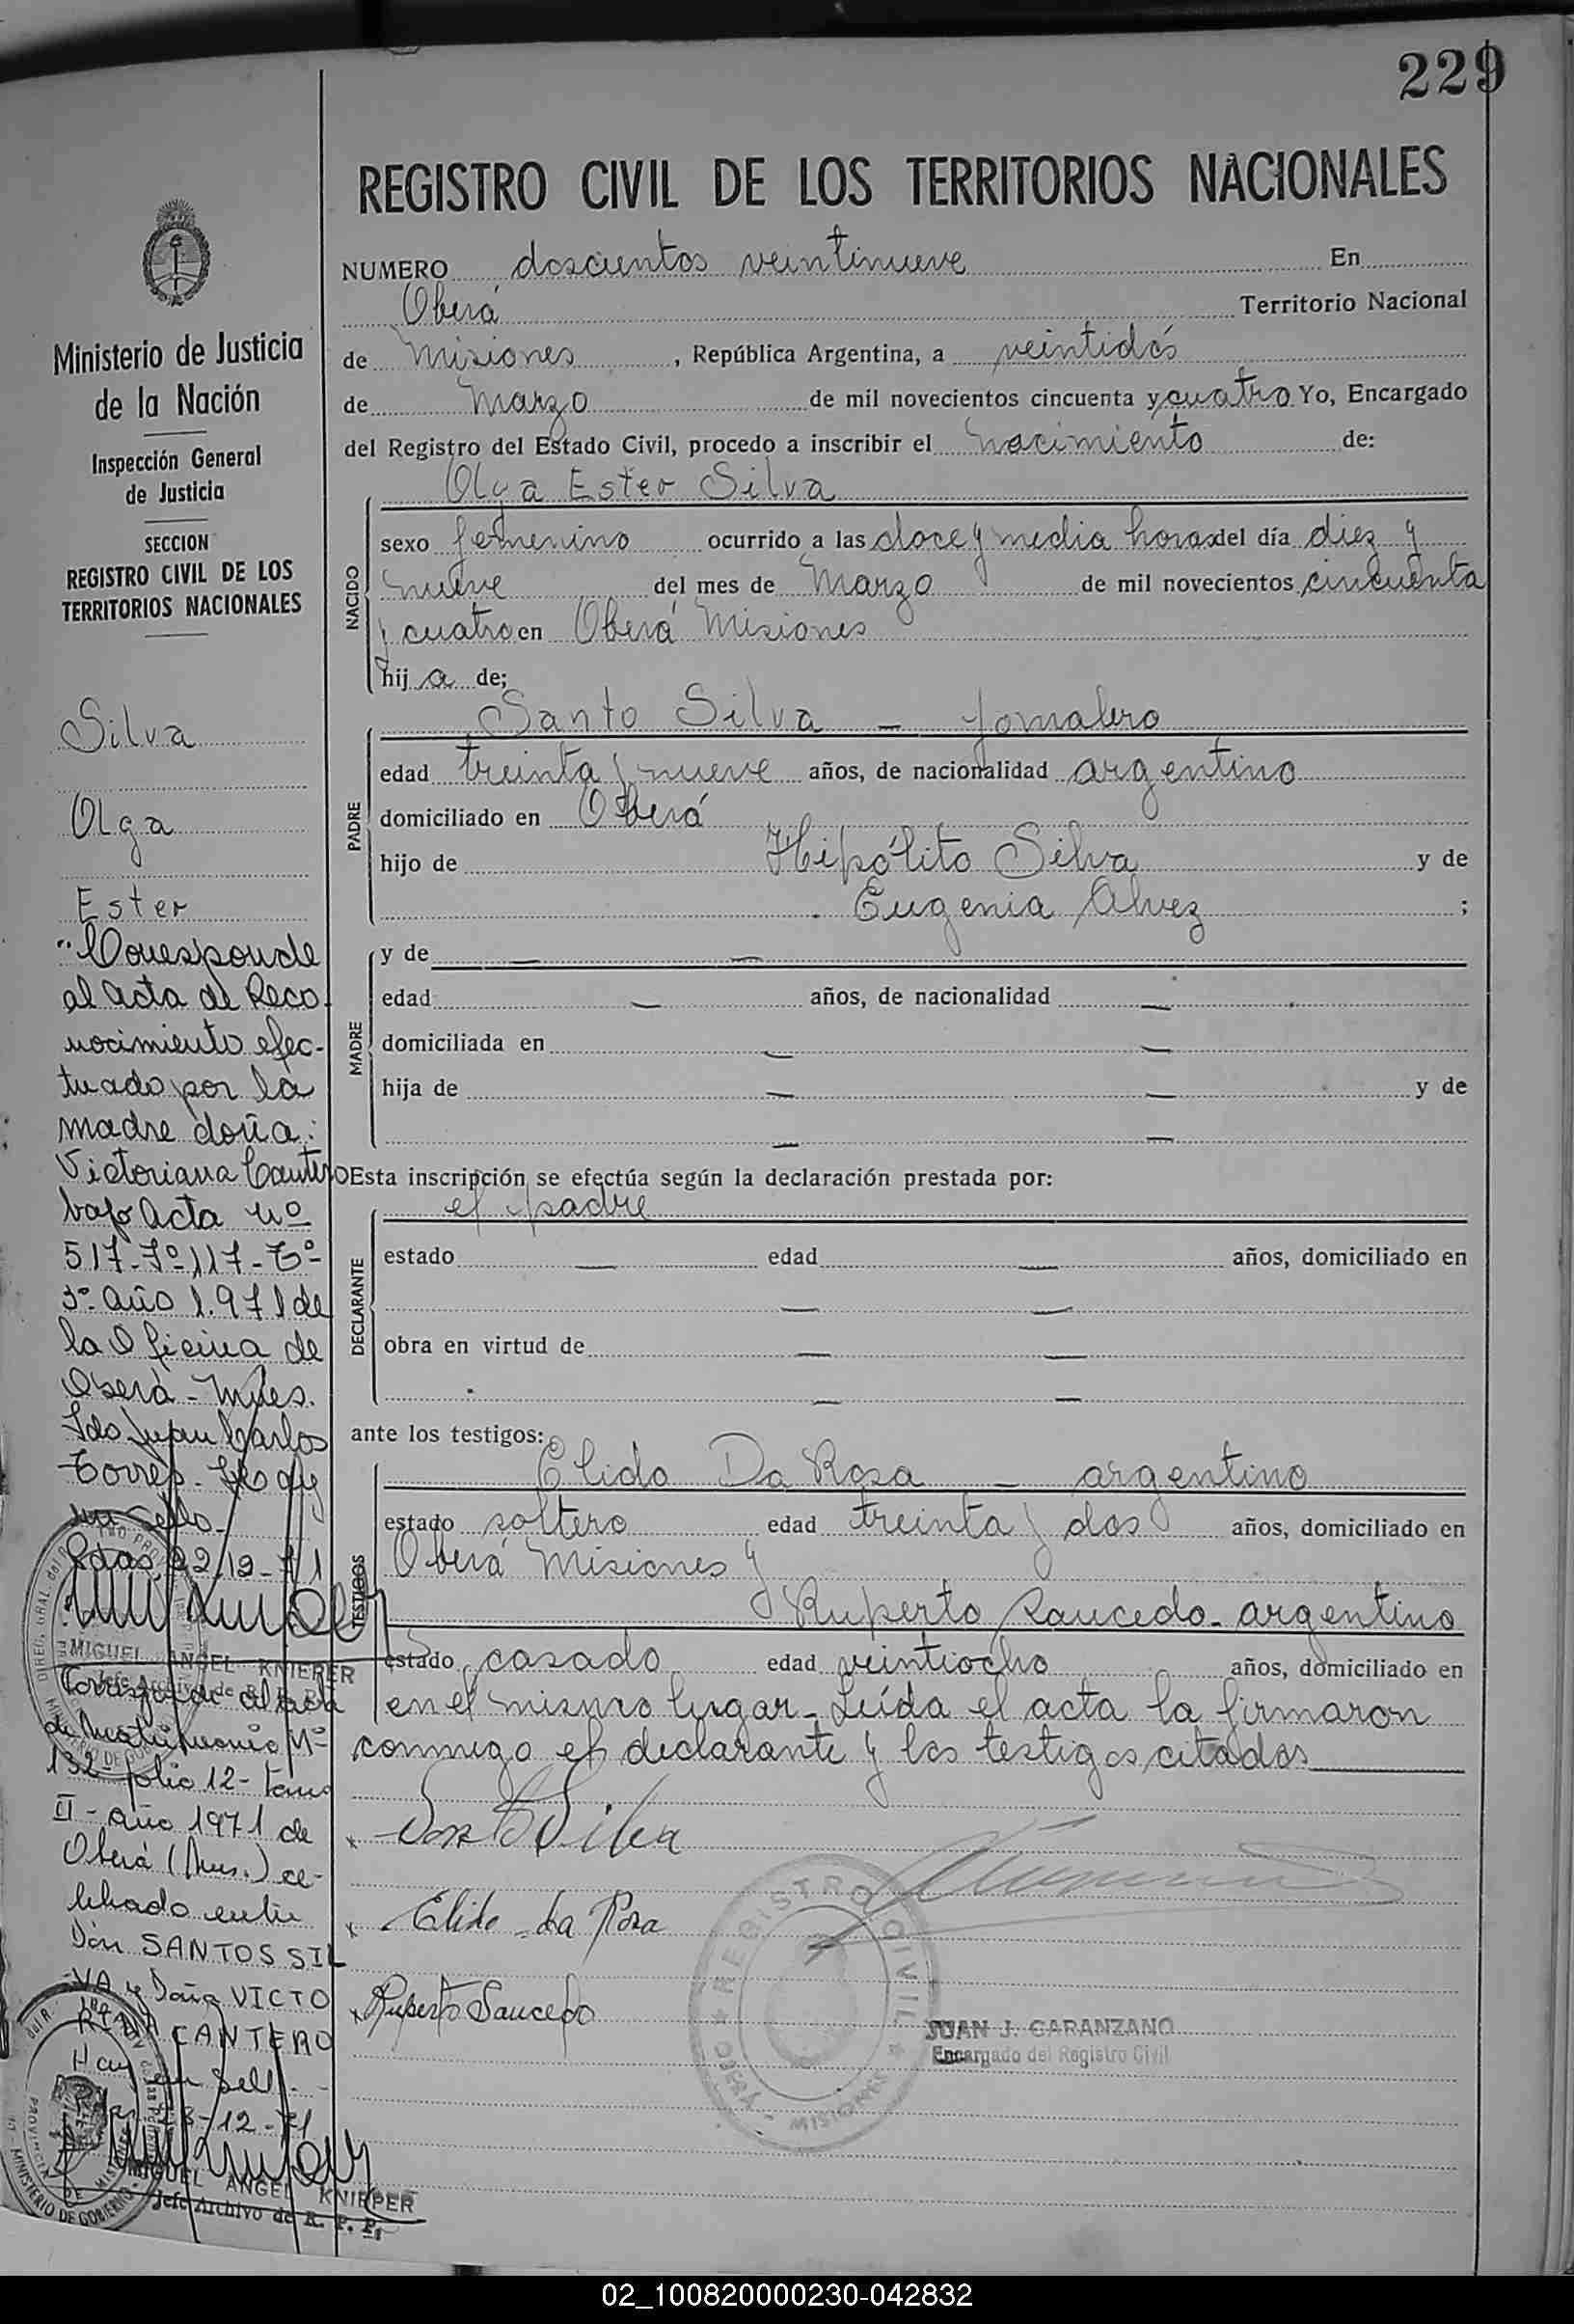 229
REGISTRO CIVIL DE LOS TERRITORIOS NACIONALES
NUMERO doscientos veintinueve En
Oberá Territorio Nacional
de Misiones, República Argentina, a veintidós
de Marzo de mil novecientos cincuenta y cuatro Yo, Encargado
del Registro del Estado Civil, procedo a inscribir el nacimiento de:
Olga Ester Silva
NACIDO
sexo femenino ocurrido a las doce y media horas del día diez y
nueve del mes de Marzo de mil novecientos cincuenta
y cuatro en Oberá Misiones
hij a de;
Santo Silva — jornalero
PADRE
edad treinta y nueve años, de nacionalidad argentino
domiciliado en Oberá
hijo de Hipólito Silva y de
Eugenia Alvez ;
MADRE
y de — —
edad — años, de nacionalidad —
domiciliada en — —
hija de — — y de
— —
Esta inscripción se efectúa según la declaración prestada por:
el padre
DECLARANTE
estado — edad — años, domiciliado en
— —
obra en virtud de — —
— —
ante los testigos:
Elido Da Rosa — argentino
TESTIGOS
estado soltero edad treinta y dos años, domiciliado en
Oberá Misiones y
Ruperto Saucedo - argentino
estado casado edad veintiocho años, domiciliado en
en el mismo lugar. Leída el acta la firmaron
conmigo el declarante y los testigos citados
x Santo Silva
x Elido da Rosa
x Ruperto Saucedo
REGISTRO CIVIL
OBERÁ - MISIONES
JUAN J. GARANZANO
Encargado del Registro Civil
Ministerio de Justicia
de la Nación
Inspección General
de Justicia
SECCION
REGISTRO CIVIL DE LOS
TERRITORIOS NACIONALES
Silva
Olga
Ester
"Corresponde
al acta de Reco-
nocimiento efec-
tuado por la
madre doña:
Victoriana Cantero
bajo Acta nº
517-Fº 117-Tº
3º año 1.971 de
la Oficina de
Oberá - Mnes.
Fdo Juan Carlos
Torres. Hay
un sello.
Pdas, 22-12-71
MIGUEL ANGEL KNIEPER
Jefe Archivo de R. P. P.
Corresponde al acta
de Matrimonio Nº
132 folio 12 - tomo
II - año 1971 de
Oberá (Mnes.) ce-
lebrado entre
Dón SANTOS SIL
VA y Doña VICTO
RIANA CANTERO
Hay un sello.
-12-71
MIGUEL ANGEL KNIEPER
Jefe Archivo de R. P. P.
02_100820000230-042832